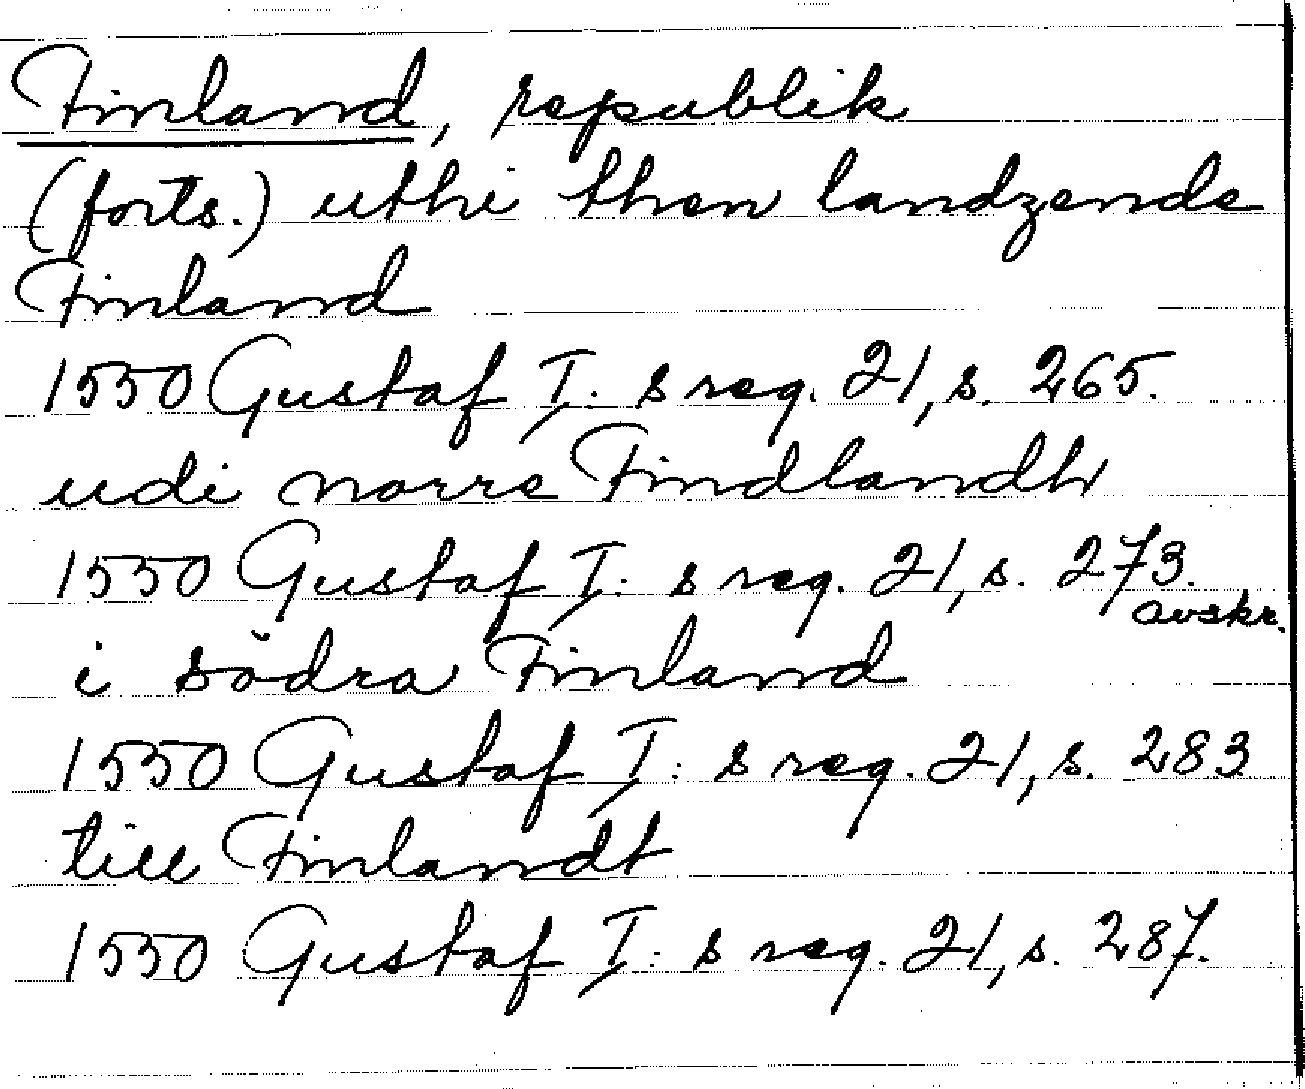 Finland, republik
(forts.) uthi then landzende
Finland
1550 Gustaf I: s reg. 21, s. 265.
udi norre Findlandh
1550 Gustaf I: s reg. 21, s. 273.
avskr.
i södra Finland
1550 Gustaf I: s reg. 21, s. 283
till Finlandt
1550 Gustaf I: s reg. 21, s. 287.